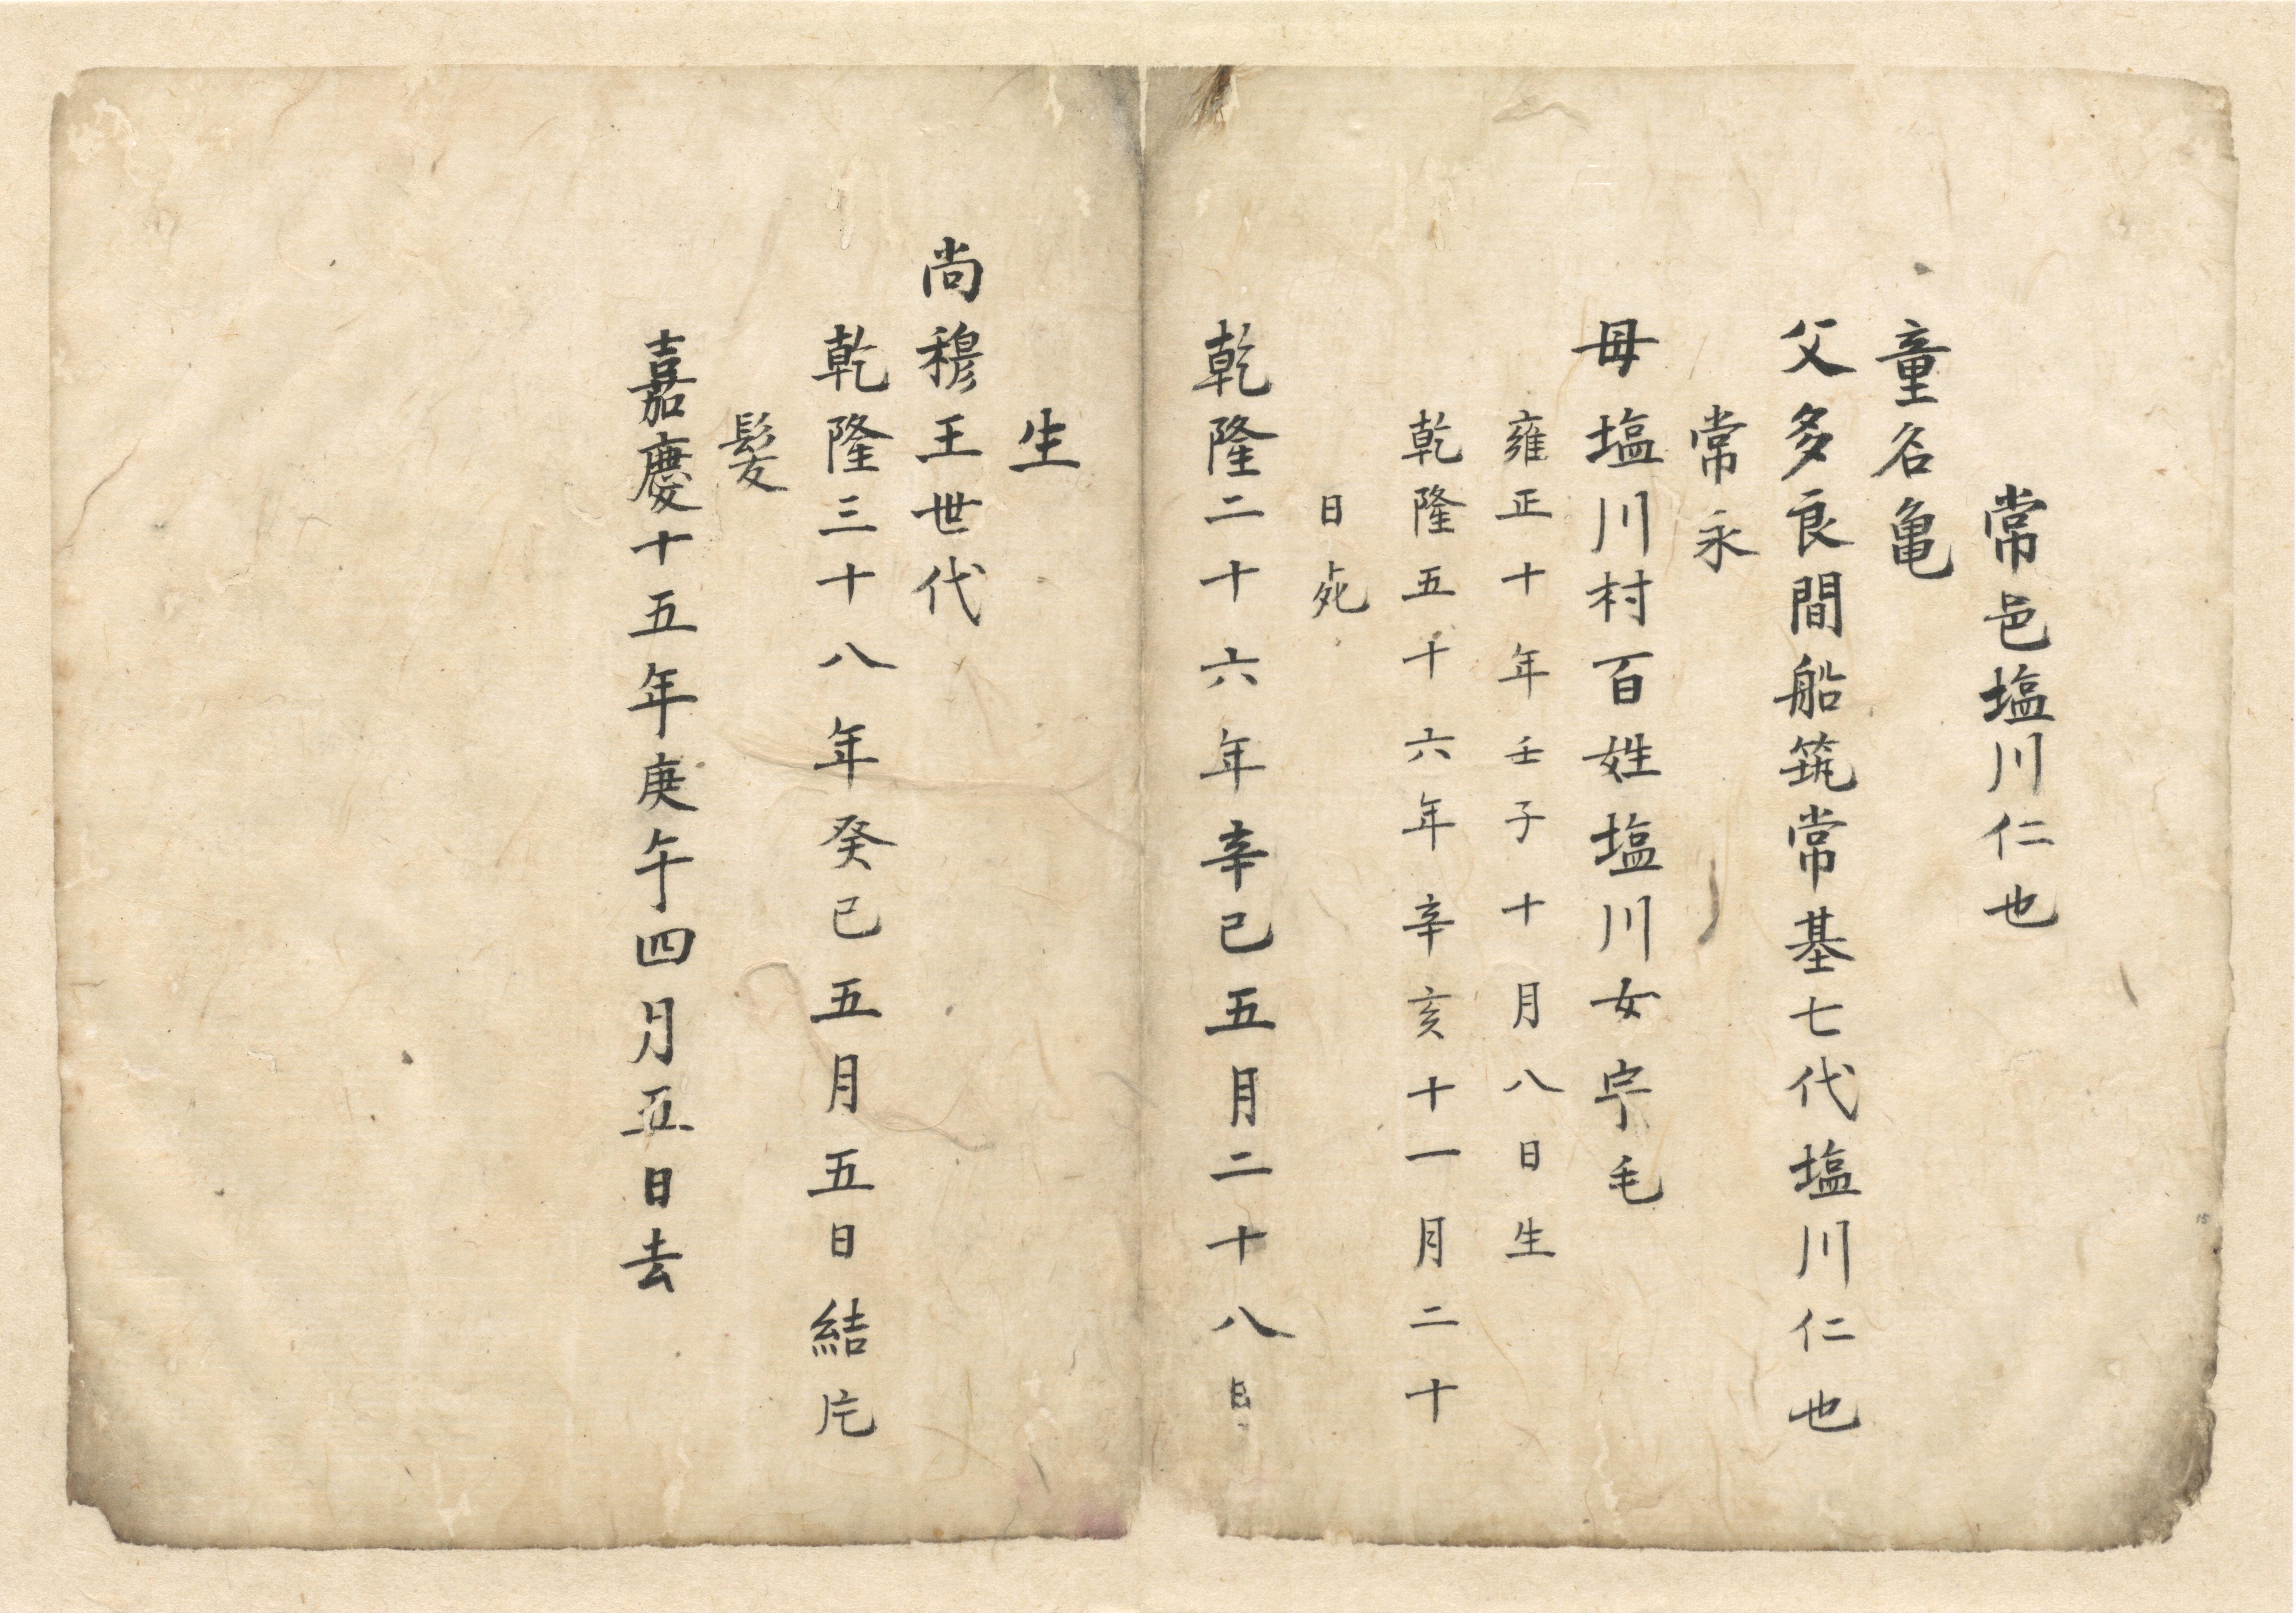 常邑塩川仁也
童名亀
父多良間船筑常基七代塩川仁也
常永
母塩川村百姓塩川女宇毛
雍正十年壬子十月八日生
乾隆五十六年辛亥十一月二十
日死
乾隆二十六年辛巳五月二十八日
生
尚穆王世代
乾隆三十八年癸巳五月五日結片
髪
嘉慶十五年庚午四月五日去